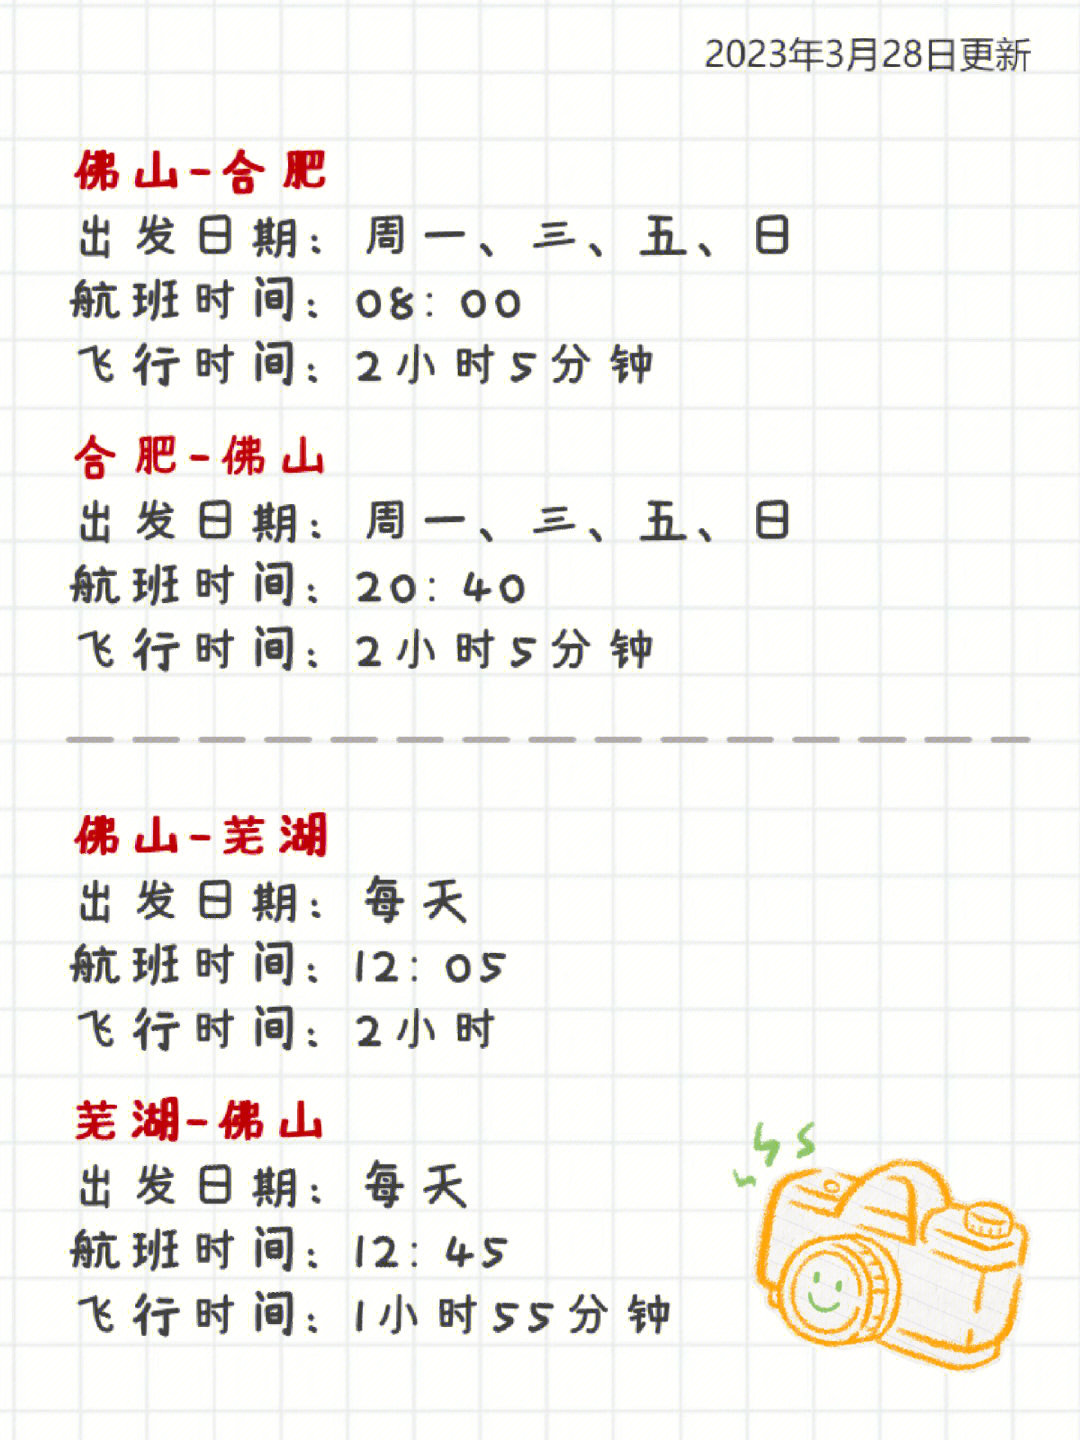 2023年3月28日更新
佛山-合肥
出发日期：周一、三、五、日
航班时间：08：00
飞行时间：2小时5分钟
合肥-佛山
出发日期：周一、三、五、日
航班时间：20：40
飞行时间：2小时5分钟
佛山-芜湖
出发日期：每天
航班时间：12：05
飞行时间：2小时
芜湖-佛山
出发日期：每天
航班时间：12：45
飞行时间：1小时55分钟